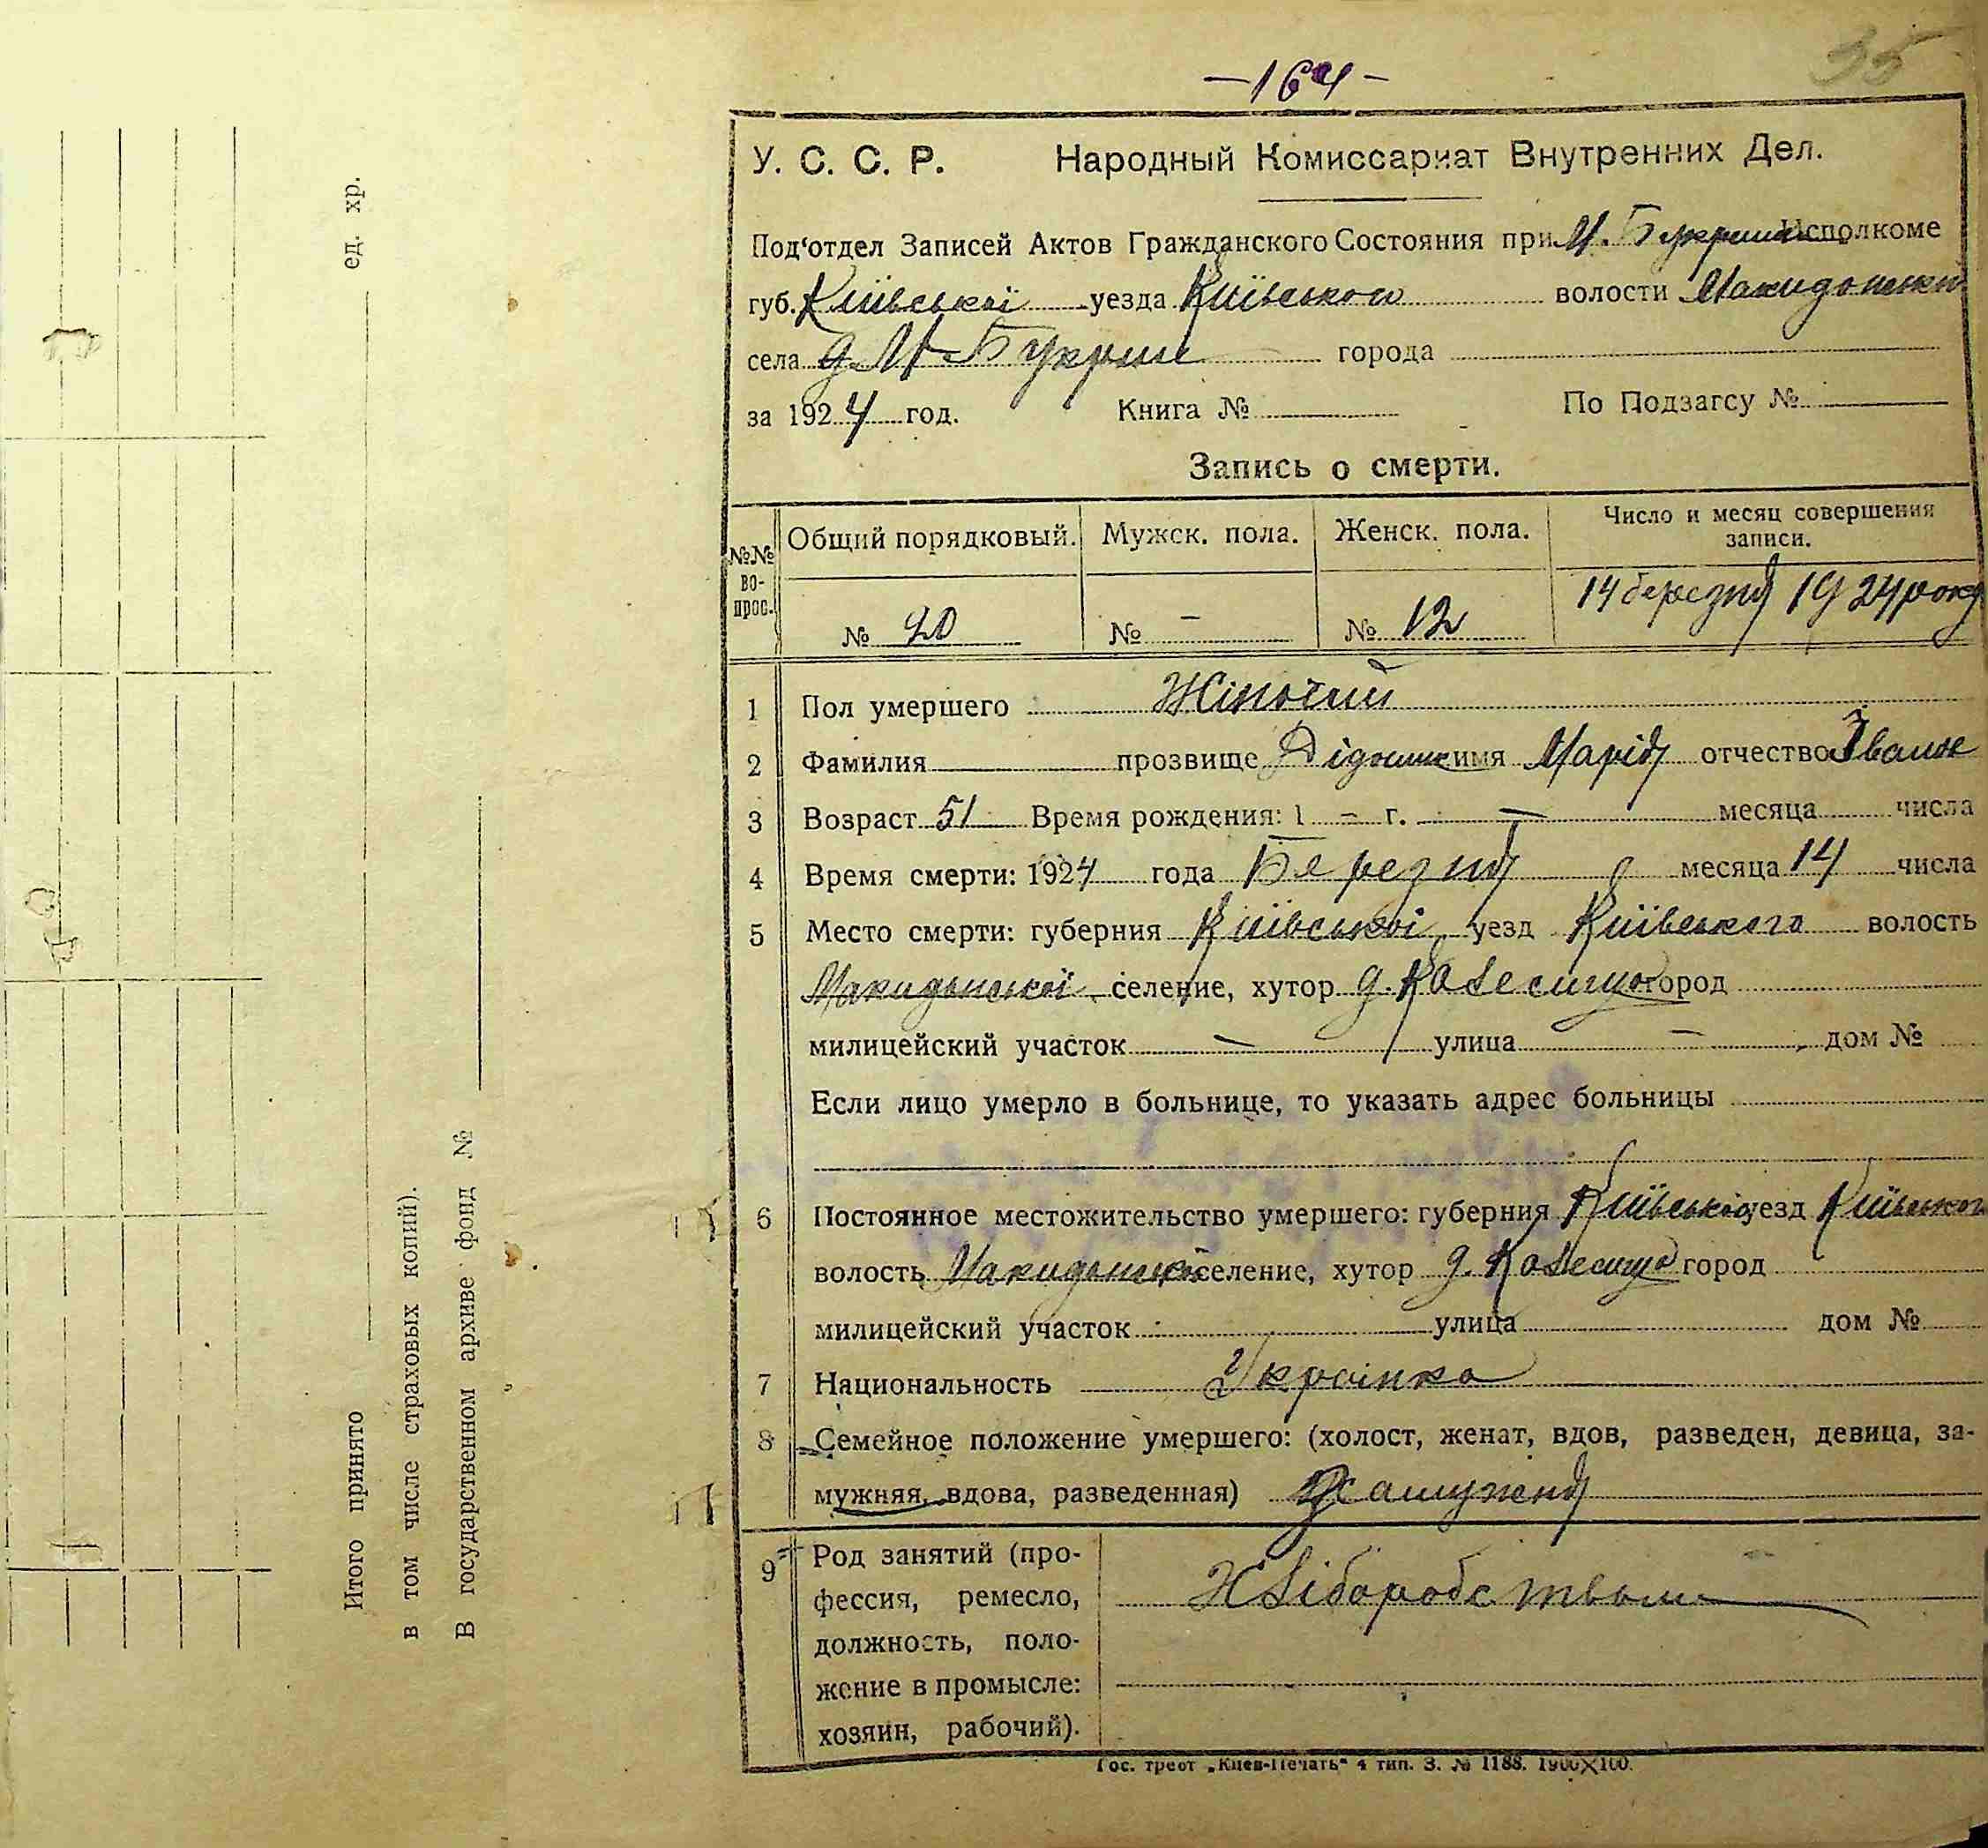 35
У. С. С. Р. Народный Комиссариат Внутренних Дел.
Под‘отдел Записей Актов Гражданского Состояния при М. Букринск Исполкоме
губ. Київської уезда Київського волости Макидонської
села д. М Букрин города
за 1924 год. Книга № По Подзагсу №
Запись о смерти.
№№ во- прос. Общий порядковый. Мужск. пола. Женск. пола. Число и месяц совершения записи.
№ 20 № – № 12 14 березня 1924 року
1 Пол умершего Жіночий
2 Фамилия прозвище имя Марія отчество Іванов
3 Возраст 51 Время рождения: 1 – г. – месяца числа
4 Время смерти: 1924 года Березня месяца 14 числа
5 Место смерти: губерния Київської уезд Київського волость
Макидонської селение, хутор д. Колесище город
милицейский участок – улица – дом №
Если лицо умерло в больнице, то указать адрес больницы
6 Постоянное местожительство умершего: губерния Київської уезд Київського
волость Макидонської селение, хутор д. Колесище город
милицейский участок улица дом №
7 Национальность Українка
8 Семейное положение умершего: (холост, женат, вдов, разведен, девица, за-
мужняя, вдова, разведенная) Замужня
9 Род занятий (про-
фессия, ремесло, Хліборобством
должность, поло-
жение в промысле:
хозяин, рабочий).
Гос. трест „Киев-Печать“ 4 тип. З. № 1188. 1900×100.
ед. хр.
Итого принято
в том числе страховых копий).
В государственном архиве фонд №